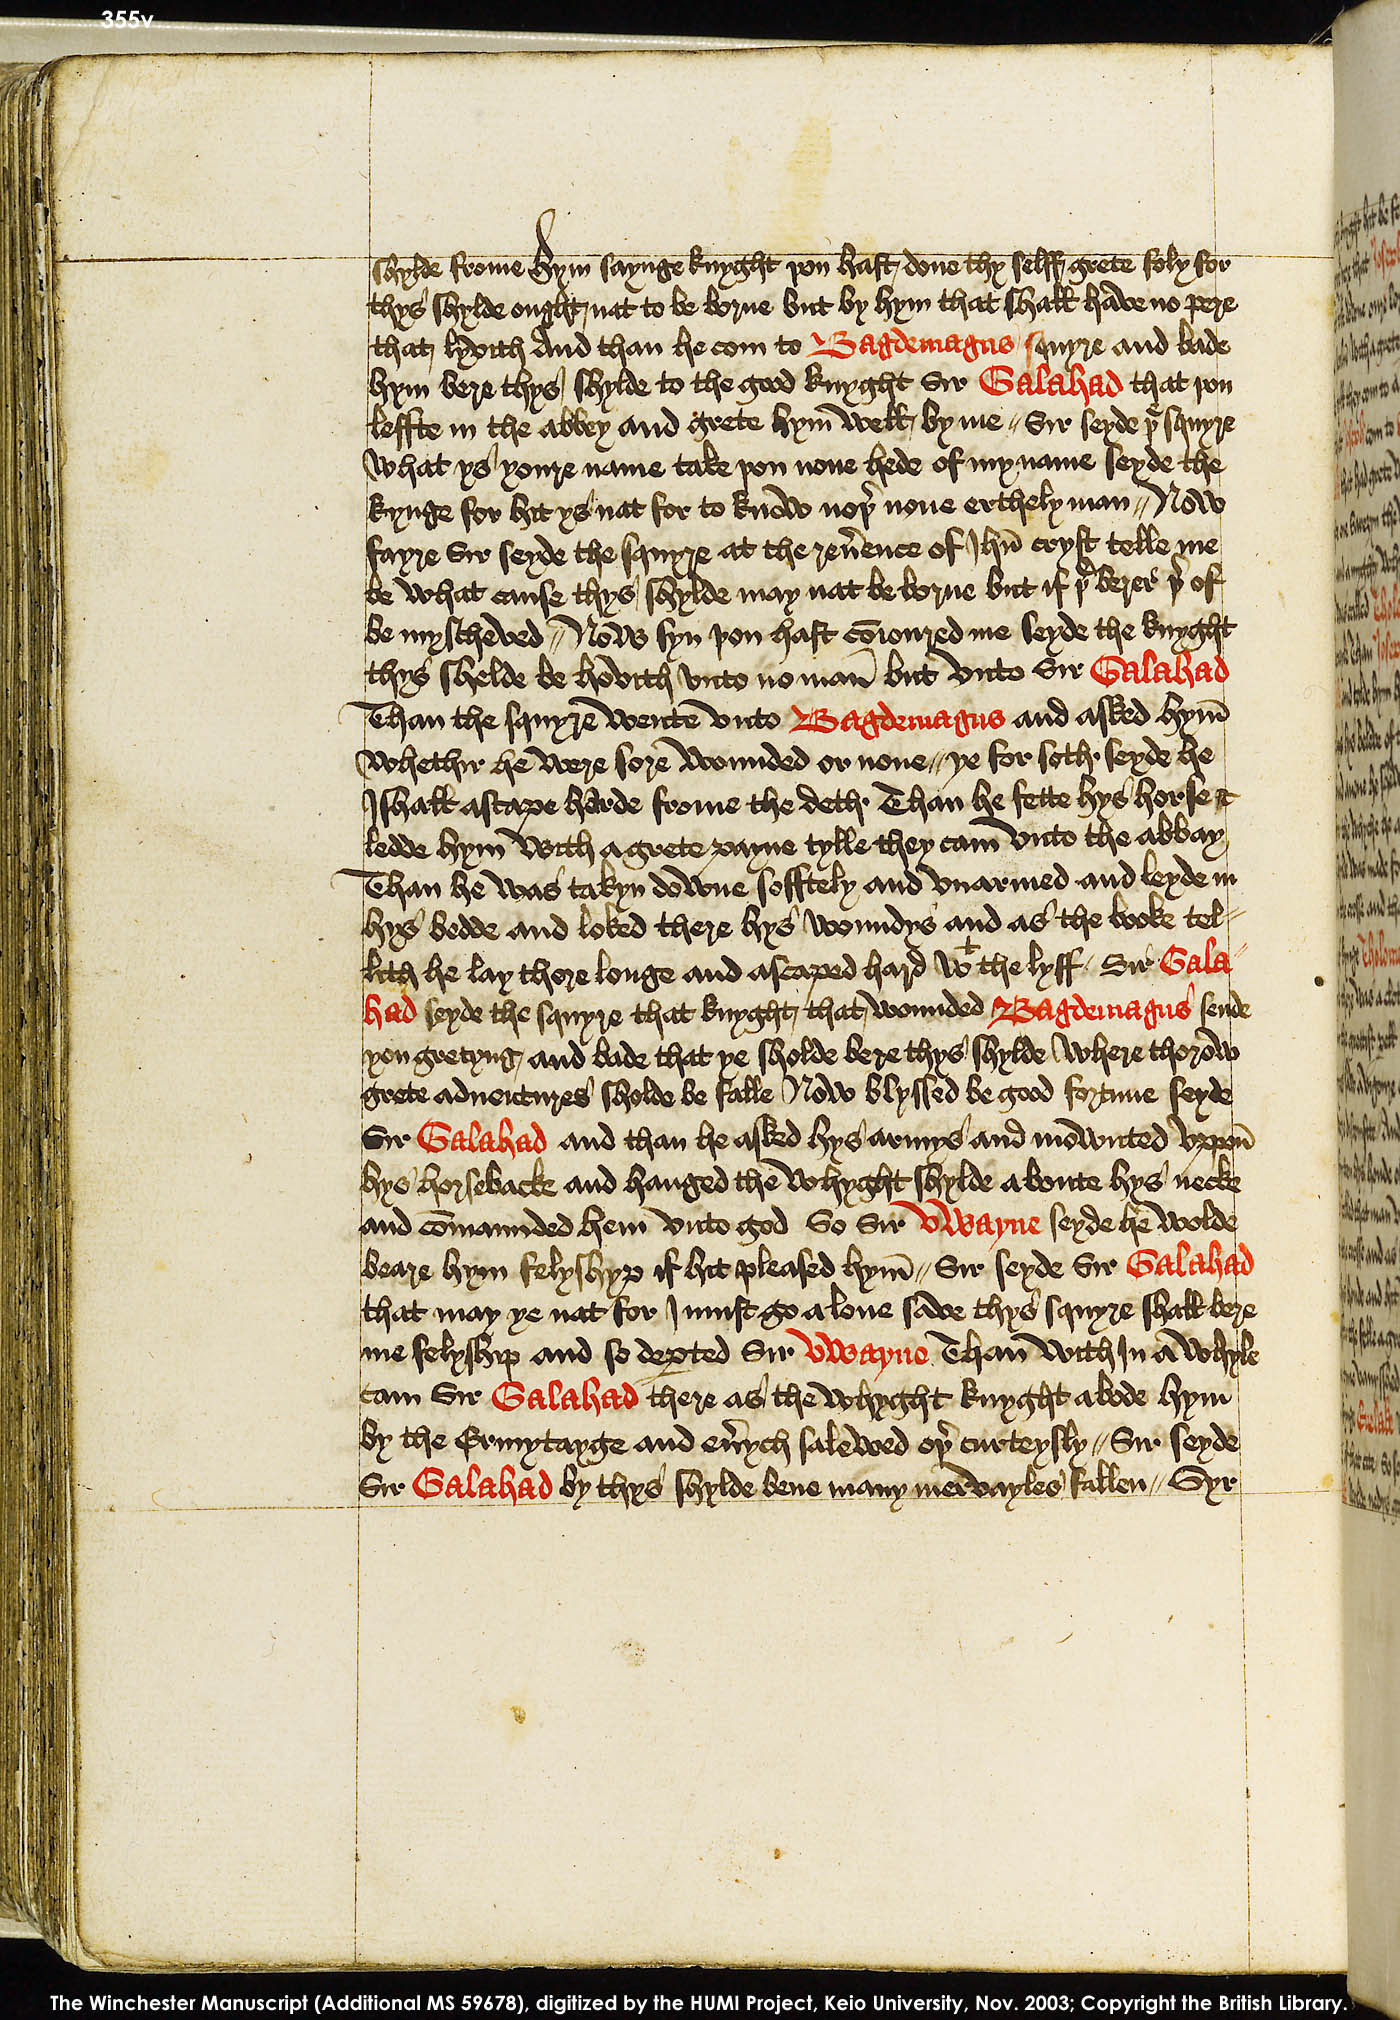 355v
shylde frome hym saynge knyght you haſt done thy selff grete foly for
thys shylde ought nat to be borne but by hym that shall have no pere
that lyvith And than he com to Bagdemagus squyre and bade
hym bere thys shylde to the good knyght Sir Galahad that you
leffte in the abbey and grete hym̄ well by me // Sir seyde yͤ squyre
what ys youre name take you none hede of my name seyde the
kynge for hit ys nat for to know noy̾ none erthely man // Now
fayre Sir seyde the squyre at the reu̾ence of Jhū cryſt telle me
be what cause thys shylde may nat be borne but if yͤ berer y̾ of
be myſcheved // Now syn you haſt cōioured me seyde the knyght
thys shelde be hovith vnto no man̄ but vnto Sir Galahad
Than the squyre wente vnto Bagdemagus and asked hym̄
whethir he were sore wounded or none // ye for soth seyde he
I shall ascape harde frome the deth Than he fette hys horse &
ledde hym with a grete payne tylle they cam vnto the abbay
Than he was takyn downe sofftely and vnarmed and leyde in
hys bedde and loked there hys woundys and as the booke tel//
lith he lay there longe and ascaped hard wᵗ the lyff Sir Gala//
had seyde the squyre that knyght that wounded Bagdemagus sende
you gretyng and bade that ye sholde bere thys shylde where thorow
grete adventures sholde be falle Now blyssed be good fortune seyde
Sir Galahad and than he asked hys armys and mownted vppon̄
hys horsebacke and hanged the whyght shylde aboute hys necke
and cōmaunded hem vnto god So Sir vwayne seyde he wolde
beare hym felyshyp if hit pleased hym̄ // Sir seyde Sir Galahad
that may ye nat for I muſt go alone save thys squyre shall bere
me felyship and so dep̱ted Sir vwayne Than with In a whyle
cam Sir Galahad there as the whyght knyght abode hym
by the Ermytayge and eu̾ych salewed oy̾ curteysly // Sir seyde
Sir Galahad by thys shylde bene many mervayles fallen // Syr
The Winchester Manuscript (Additional MS 59678), digitized by the HUMI Project, Keio University, Nov. 2003; Copyright the British Library.